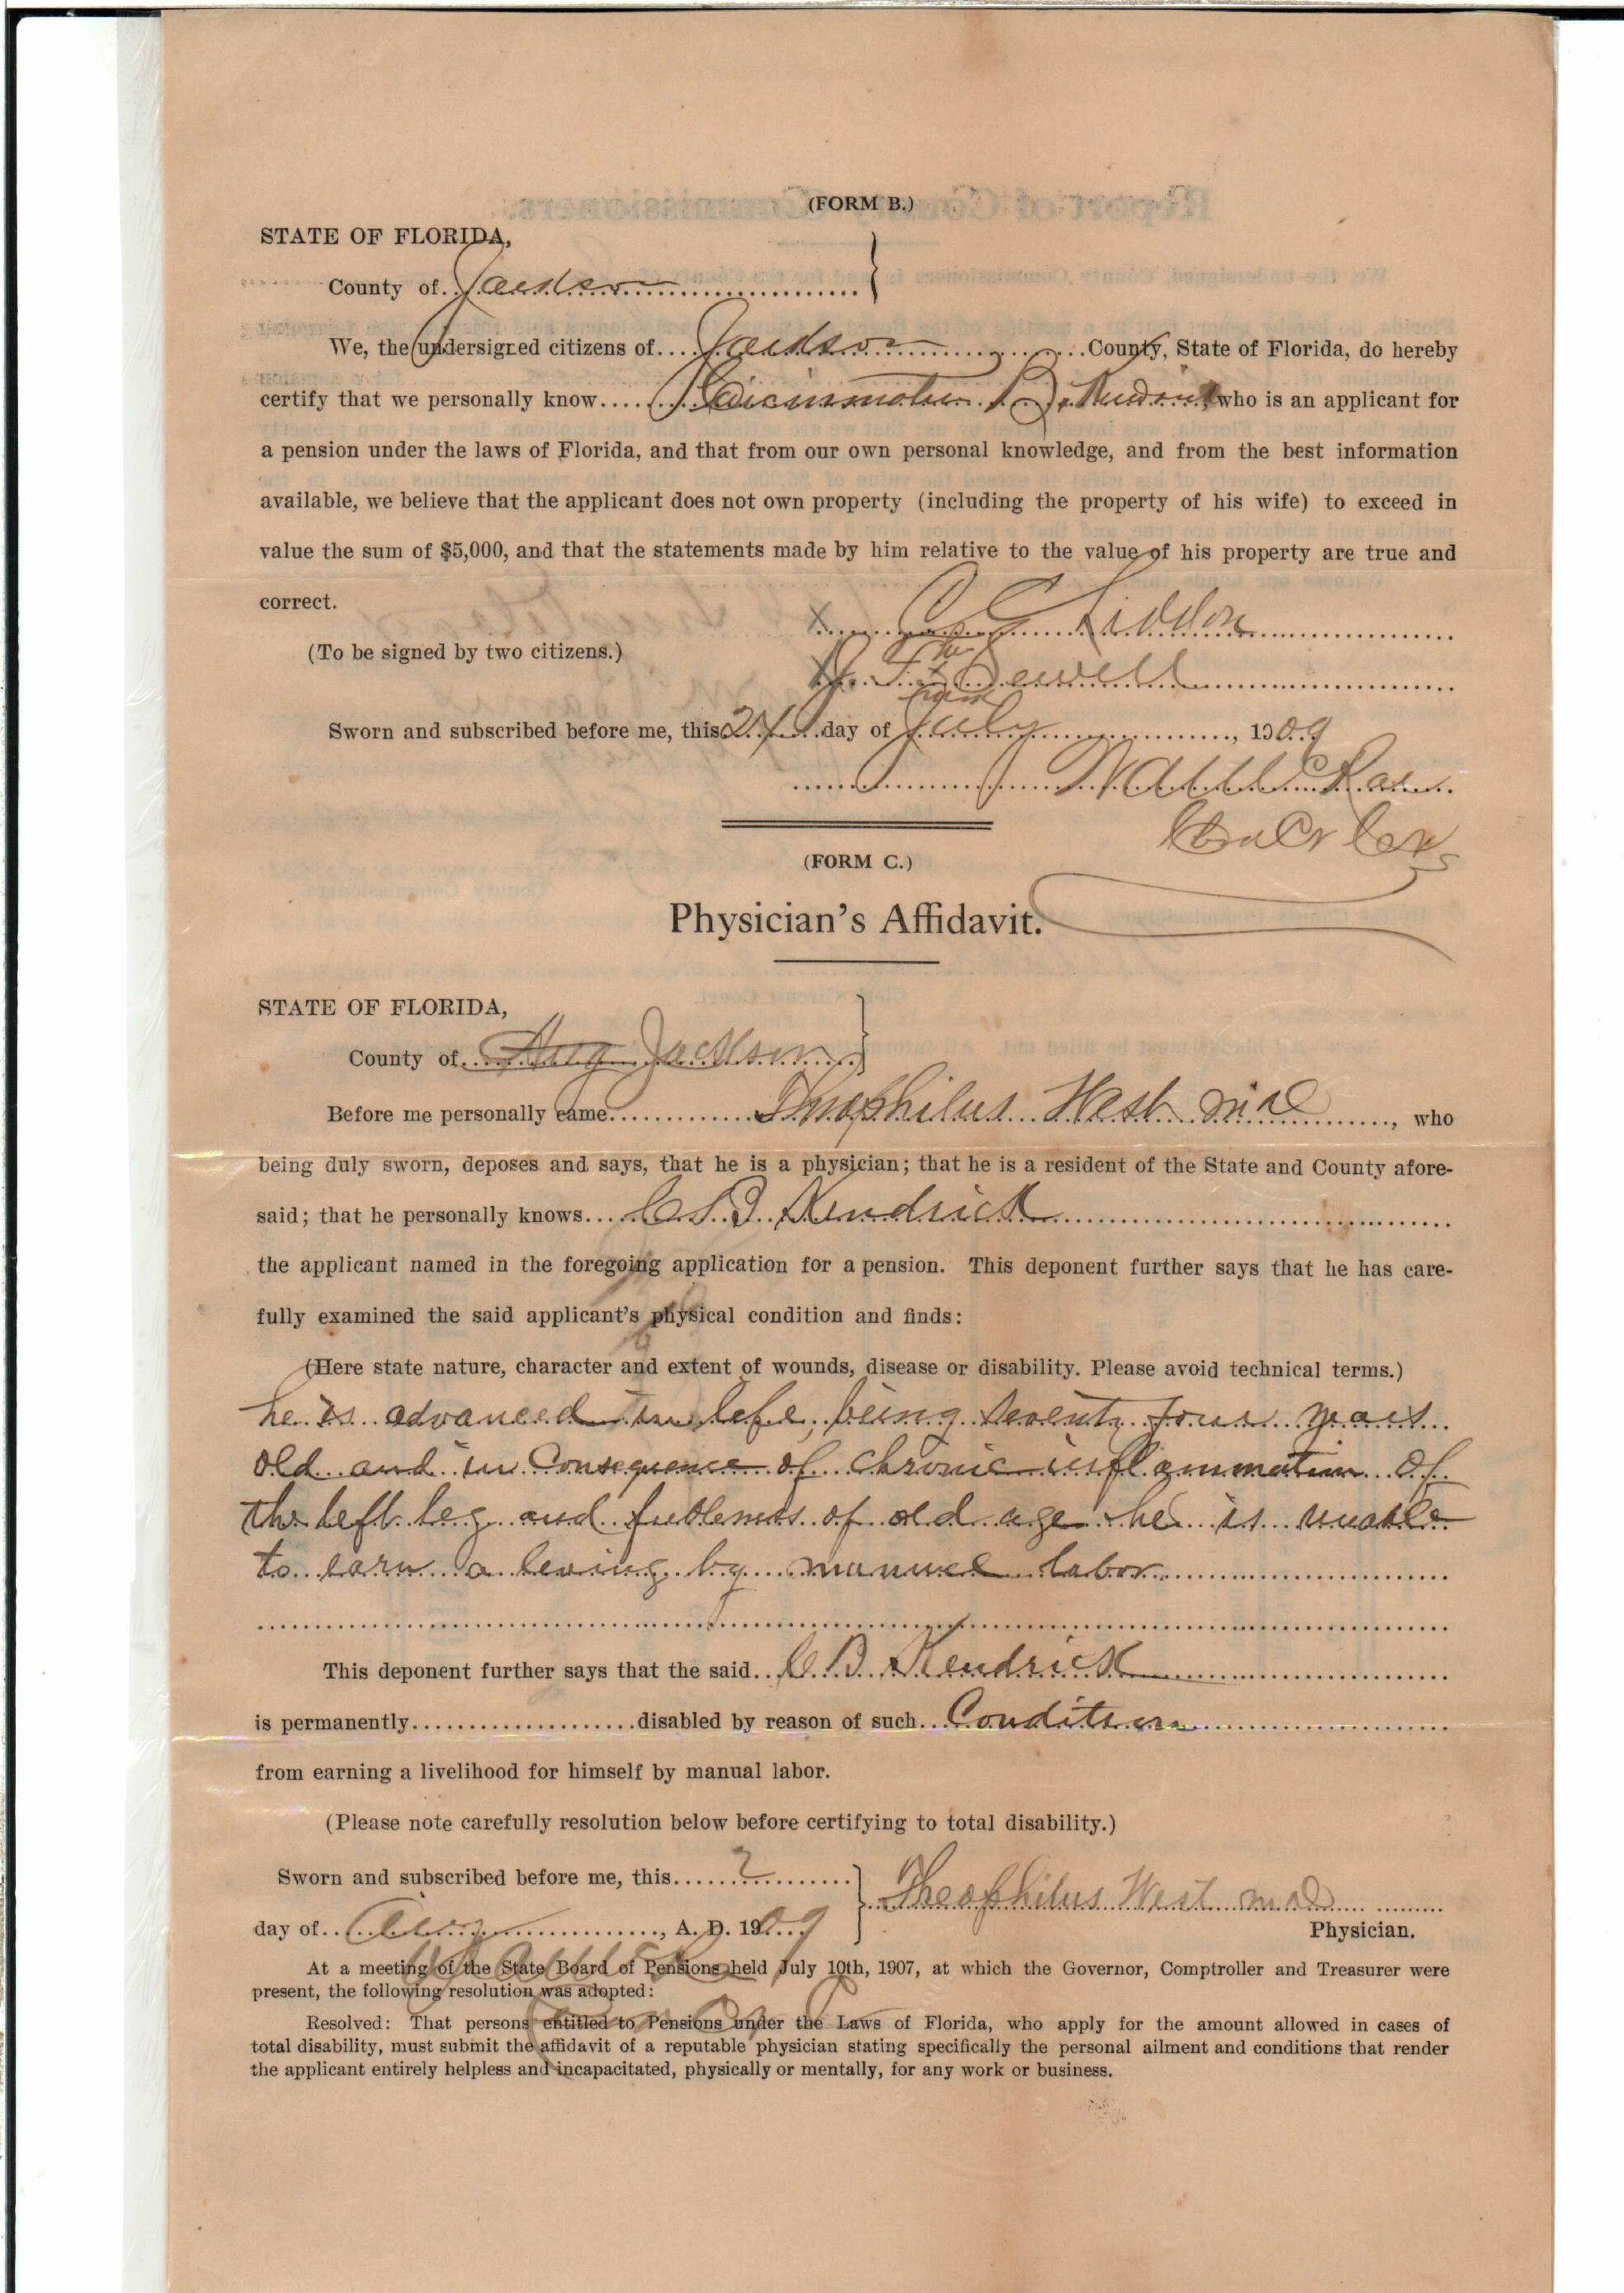 (FORM B.)
STATE OF FLORIDA,
County of Jackson
We, the undersigned citizens of Jackson County, State of Florida, do hereby
certify that we personally know B. Kendrick who is an applicant for
a pension under the laws of Florida, and that from our own personal knowledge, and from the best information
available, we believe that the applicant does not own property (including the property of his wife) to exceed in
value the sum of $5,000, and that the statements made by him relative to the value of his property are true and
correct.
x C C Liddon
(To be signed by two citizens.)
his
x Sewell
mark
Sworn and subscribed before me, this day of July, 1909
(FORM C.)
Physician's Affidavit.
STATE OF FLORIDA,
County of Aug Jackson
Before me personally came Theophilus West M D, who
being duly sworn, deposes and says, that he is a physician; that he is a resident of the State and County afore-
said; that he personally knows Kendrick
the applicant named in the foregoing application for a pension. This deponent further says that he has care-
fully examined the said applicant's physical condition and finds:
(Here state nature, character and extent of wounds, disease or disability. Please avoid technical terms.)
he is advanced in life, being seventy four years
old and in consequence of chronic inflammation of
the left leg and feebleness of old age he is unable
to earn a living by manuel labor
This deponent further says that the said C. B. Kendrick
is permanently disabled by reason of such Condition
from earning a livelihood for himself by manual labor.
(Please note carefully resolution below before certifying to total disability.)
Sworn and subscribed before me, this 2
Theophilus West M D
day of Aug, A. D. 1909
Physician.
At a meeting of the State Board of Pensions held July 10th, 1907, at which the Governor, Comptroller and Treasurer were
present, the following resolution was adopted:
Resolved: That persons entitled to Pensions under the Laws of Florida, who apply for the amount allowed in cases of
total disability, must submit the affidavit of a reputable physician stating specifically the personal ailment and conditions that render
the applicant entirely helpless and incapacitated, physically or mentally, for any work or business.